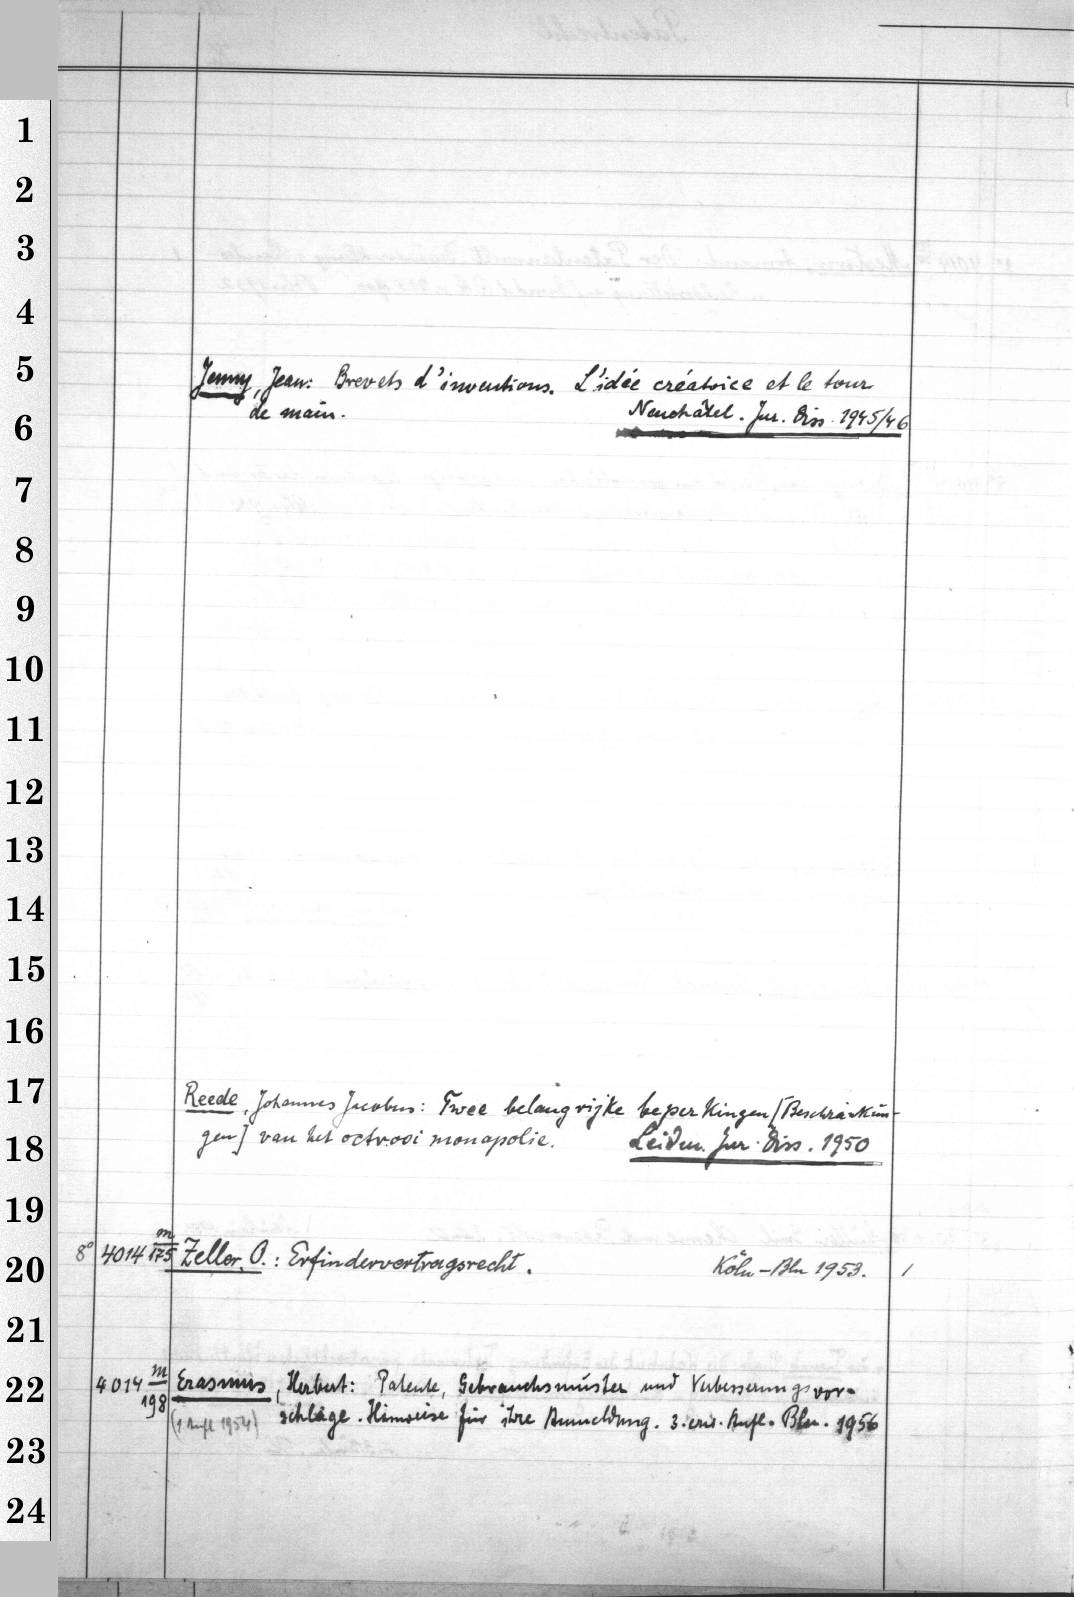 1
2
3
4
5
Jenny, Jean: Brevets d'inventions. L'idée créatrice et le tour
de main. Neuchâtel. Jur. Diss. 1945/46
6
7
8
9
10
11
12
13
14
15
16
17
Reede, Johannes Jacobus: Twee belangrijke beperkingen [Beschränkun-
gen] van het octrooi monopolie. Leiden. Jur. Diss. 1950
18
19
8° 4014 m/175 Zeller, O.: Erfindervertragsrecht. Köln-Bln 1953. 1
20
21
22
4014 m/198 Erasmus, Herbert: Patente, Gebrauchsmuster und Verbesserungsvor-
(1. Aufl 1954) schläge. Hinweise für ihre Anmeldung. 3. erw. Aufl. Bln. 1956
23
24